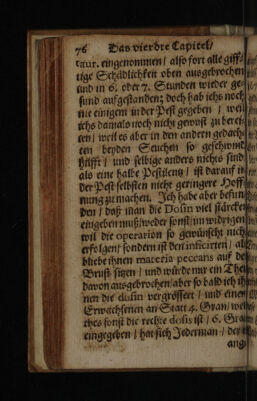 76 Das vierdte Capitel /
taur. eingenommen / also fort alle giff-
tige Schädlichkeit oben ausgebrochen
und in 6. oder 7. Stunden wieder ge-
sund aufgestanden; doch hab ichs noch
nie einigem in der Pest gegeben / weil
ichs damals noch nicht gewust zu berei-
ten / weil es aber in den andern gedach-
ten beyden Seuchen so geschwind
hilfft / und selbige anders nichts sind
als eine halbe Pestilentz / ist darauf in
der Pest selbsten nicht geringere Hoff-
nung zu machen. Ich habe aber befun-
den / daß man die Dosin viel stärcker
eingeben muß / weder sonst / im widrigen
wil die operation so gewünscht nicht
erfolgen / sondern ist den inficirten / all
bliebe ihnen materia peccans auf der
Brust sitzen / und würde nur ein Theil
davon ausgebrochen / aber so bald ich ih-
nen die dosin vergrössert / und einem
Erwachsenen an Statt 4. Gran / wel-
ches sonst die rechte dosis ist / 6. Gran
eingegeben / hat sich Jederman / der
ange